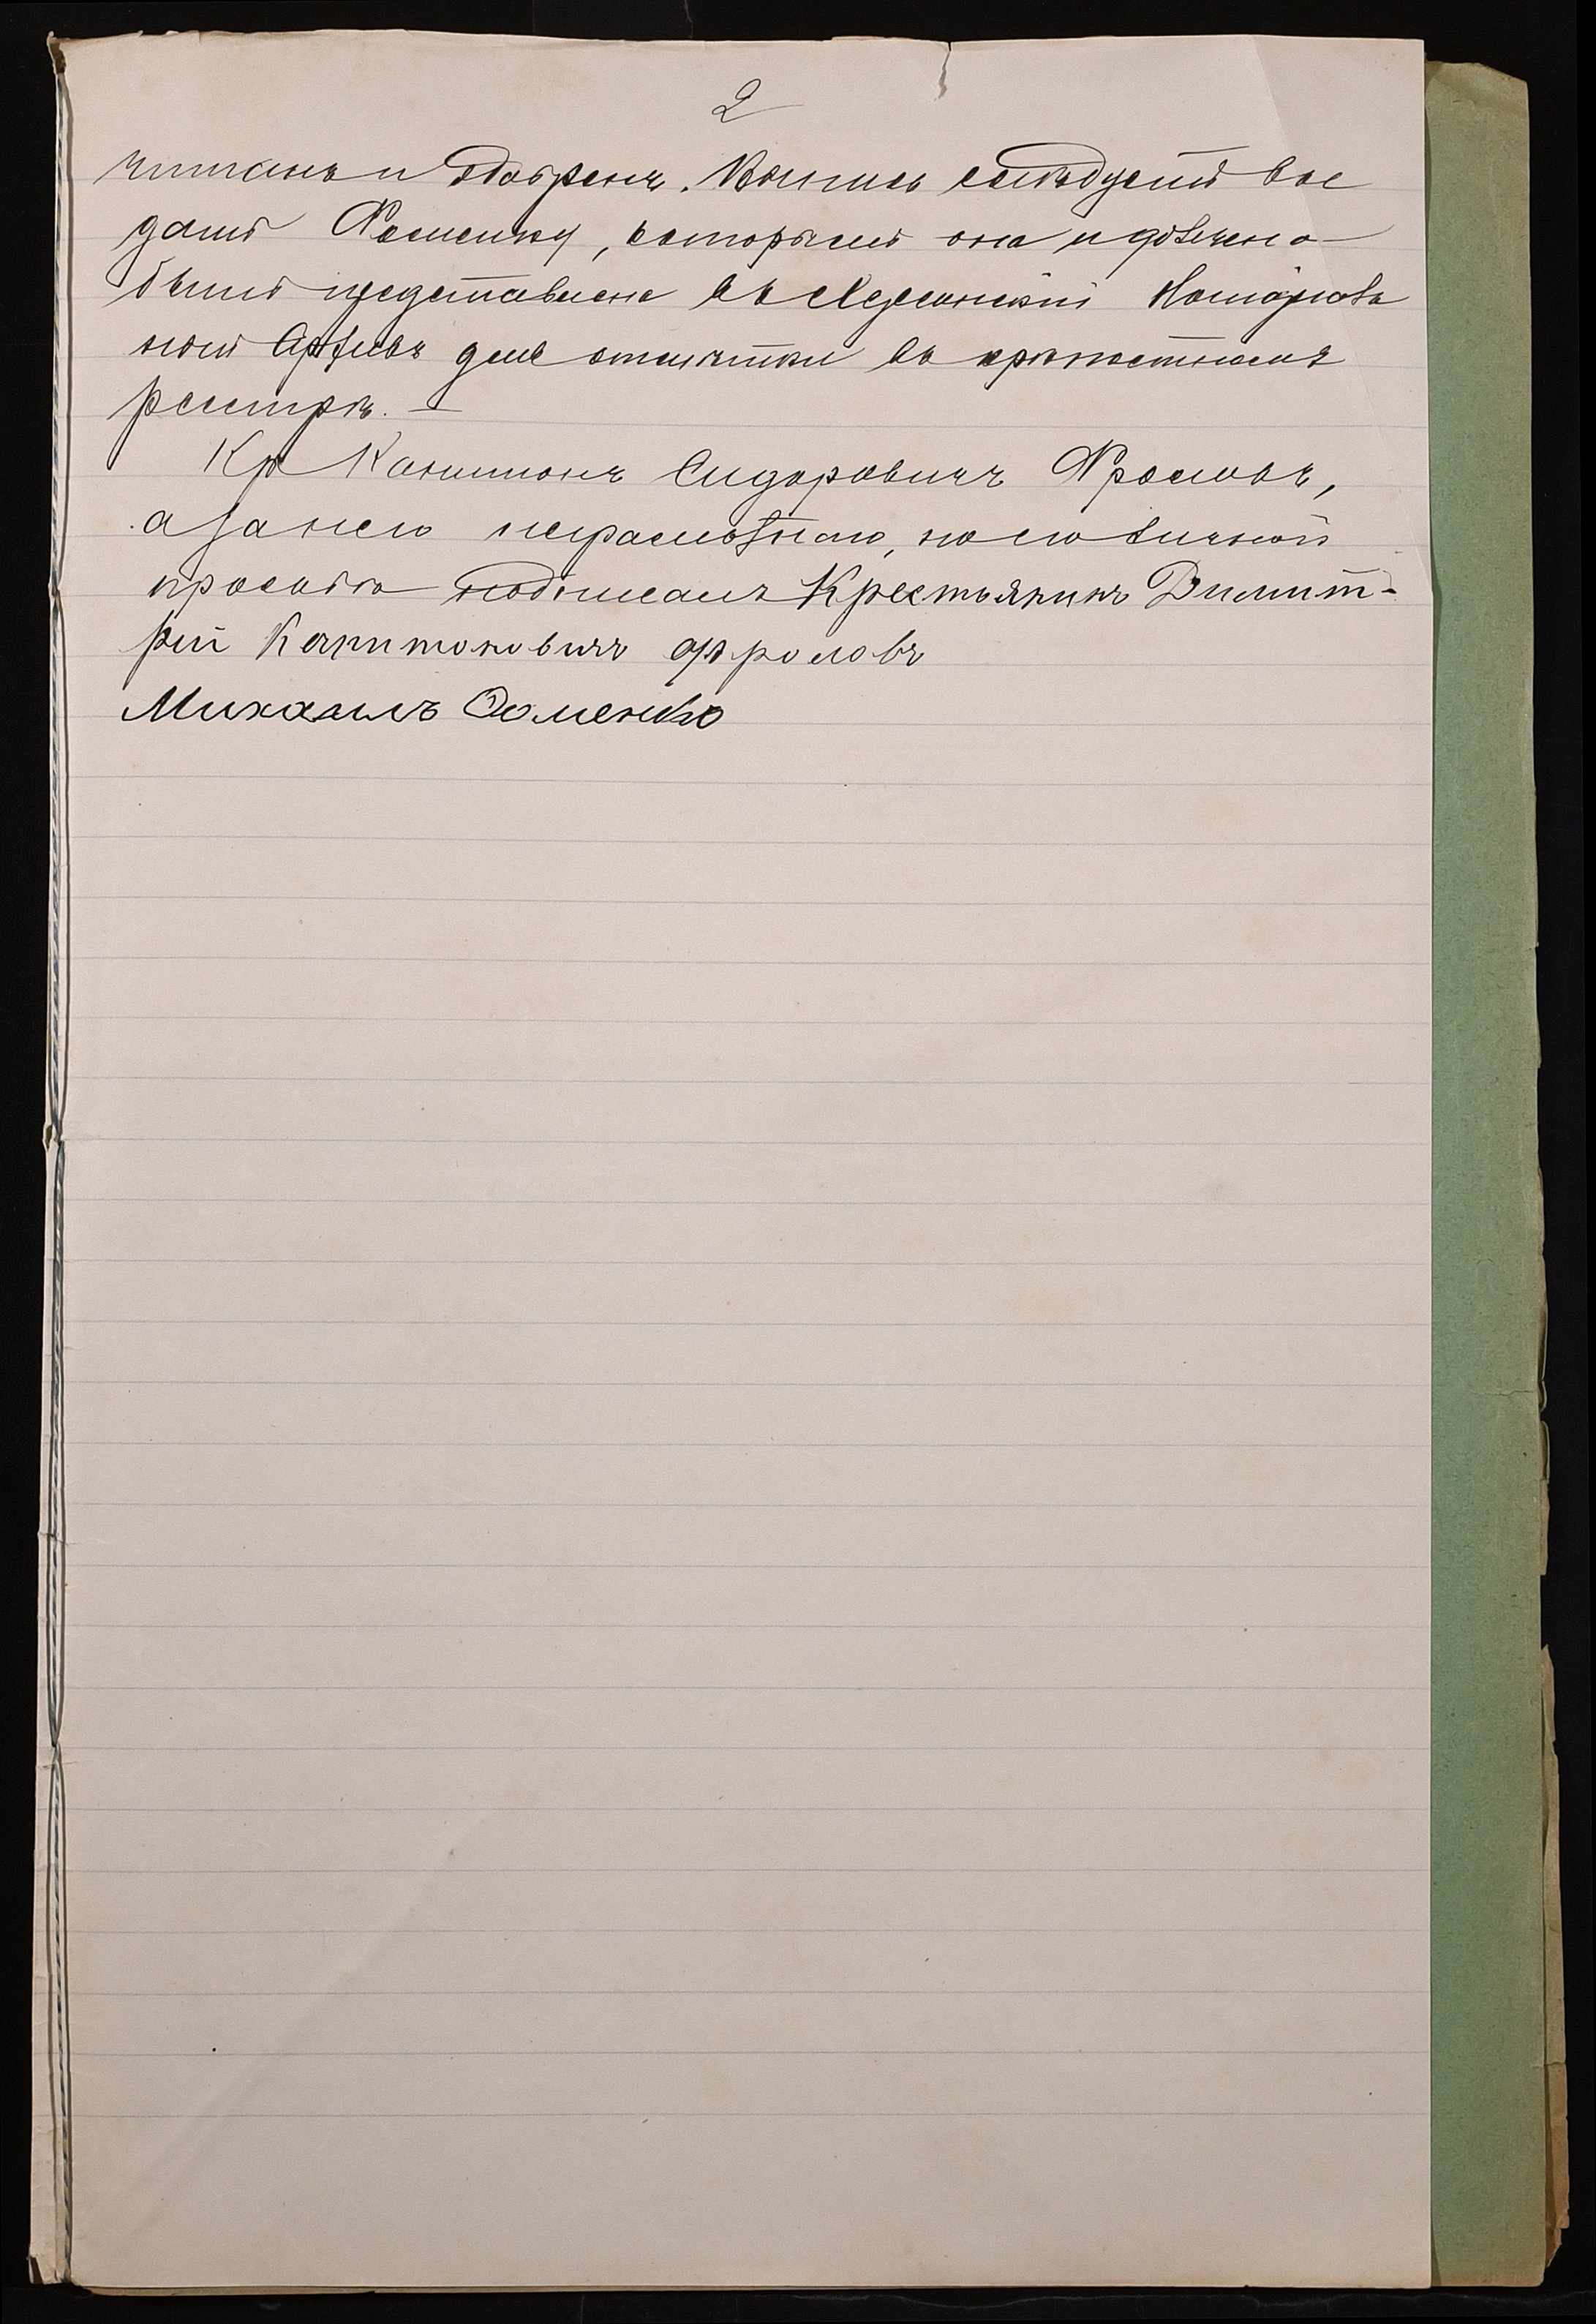 2
читанъ и одобренъ. Выпись слѣдуетъ вы
дать Фоменку, которымъ она и должна
быть представлена въ Херсонскій Нотаріаль
ный Архивъ для отмѣтки въ крѣпостномъ
реестрѣ. —
Кр Капитонъ Сидоровичъ Фроловъ,
а за него неграмотнаго, по его личной
просьбѣ подписалъ Крестьянинъ Димит-
рій Капитоновичъ Фроловъ
Михаилъ Фоменко